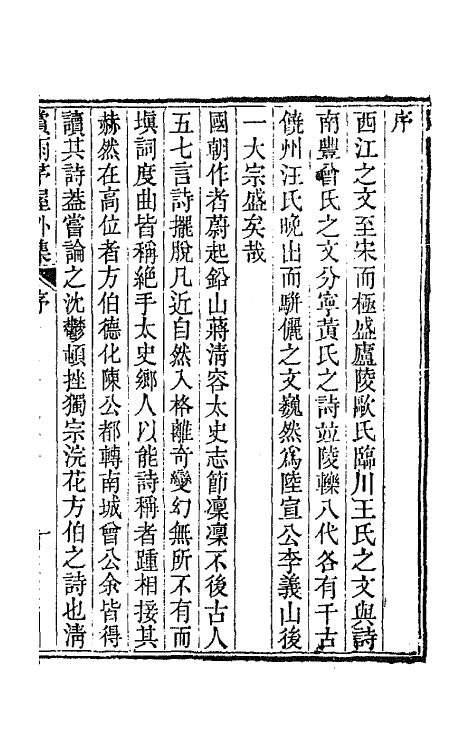 序
西江之文至宋而極盛廬陵歐氏臨川王氏之文與詩
南豐曾氏之文分寧黃氏之詩竝陵轢八代各有千古
饒州汪氏晚出而駢儷之文巍然爲陸宣公李義山後
一大宗盛矣哉
國朝作者蔚起鉛山蔣淸容太史志節凜凜不後古人
五七言詩擺脫凡近自然入格離奇變幻無所不有而
塡詞度曲皆稱絕手太史鄉人以能詩稱者踵相接其
赫然在高位者方伯德化陳公都轉南城曾公余皆得
讀其詩葢嘗論之沈鬱頓挫獨宗浣花方伯之詩也淸
賞雨茅屋外集 序 一